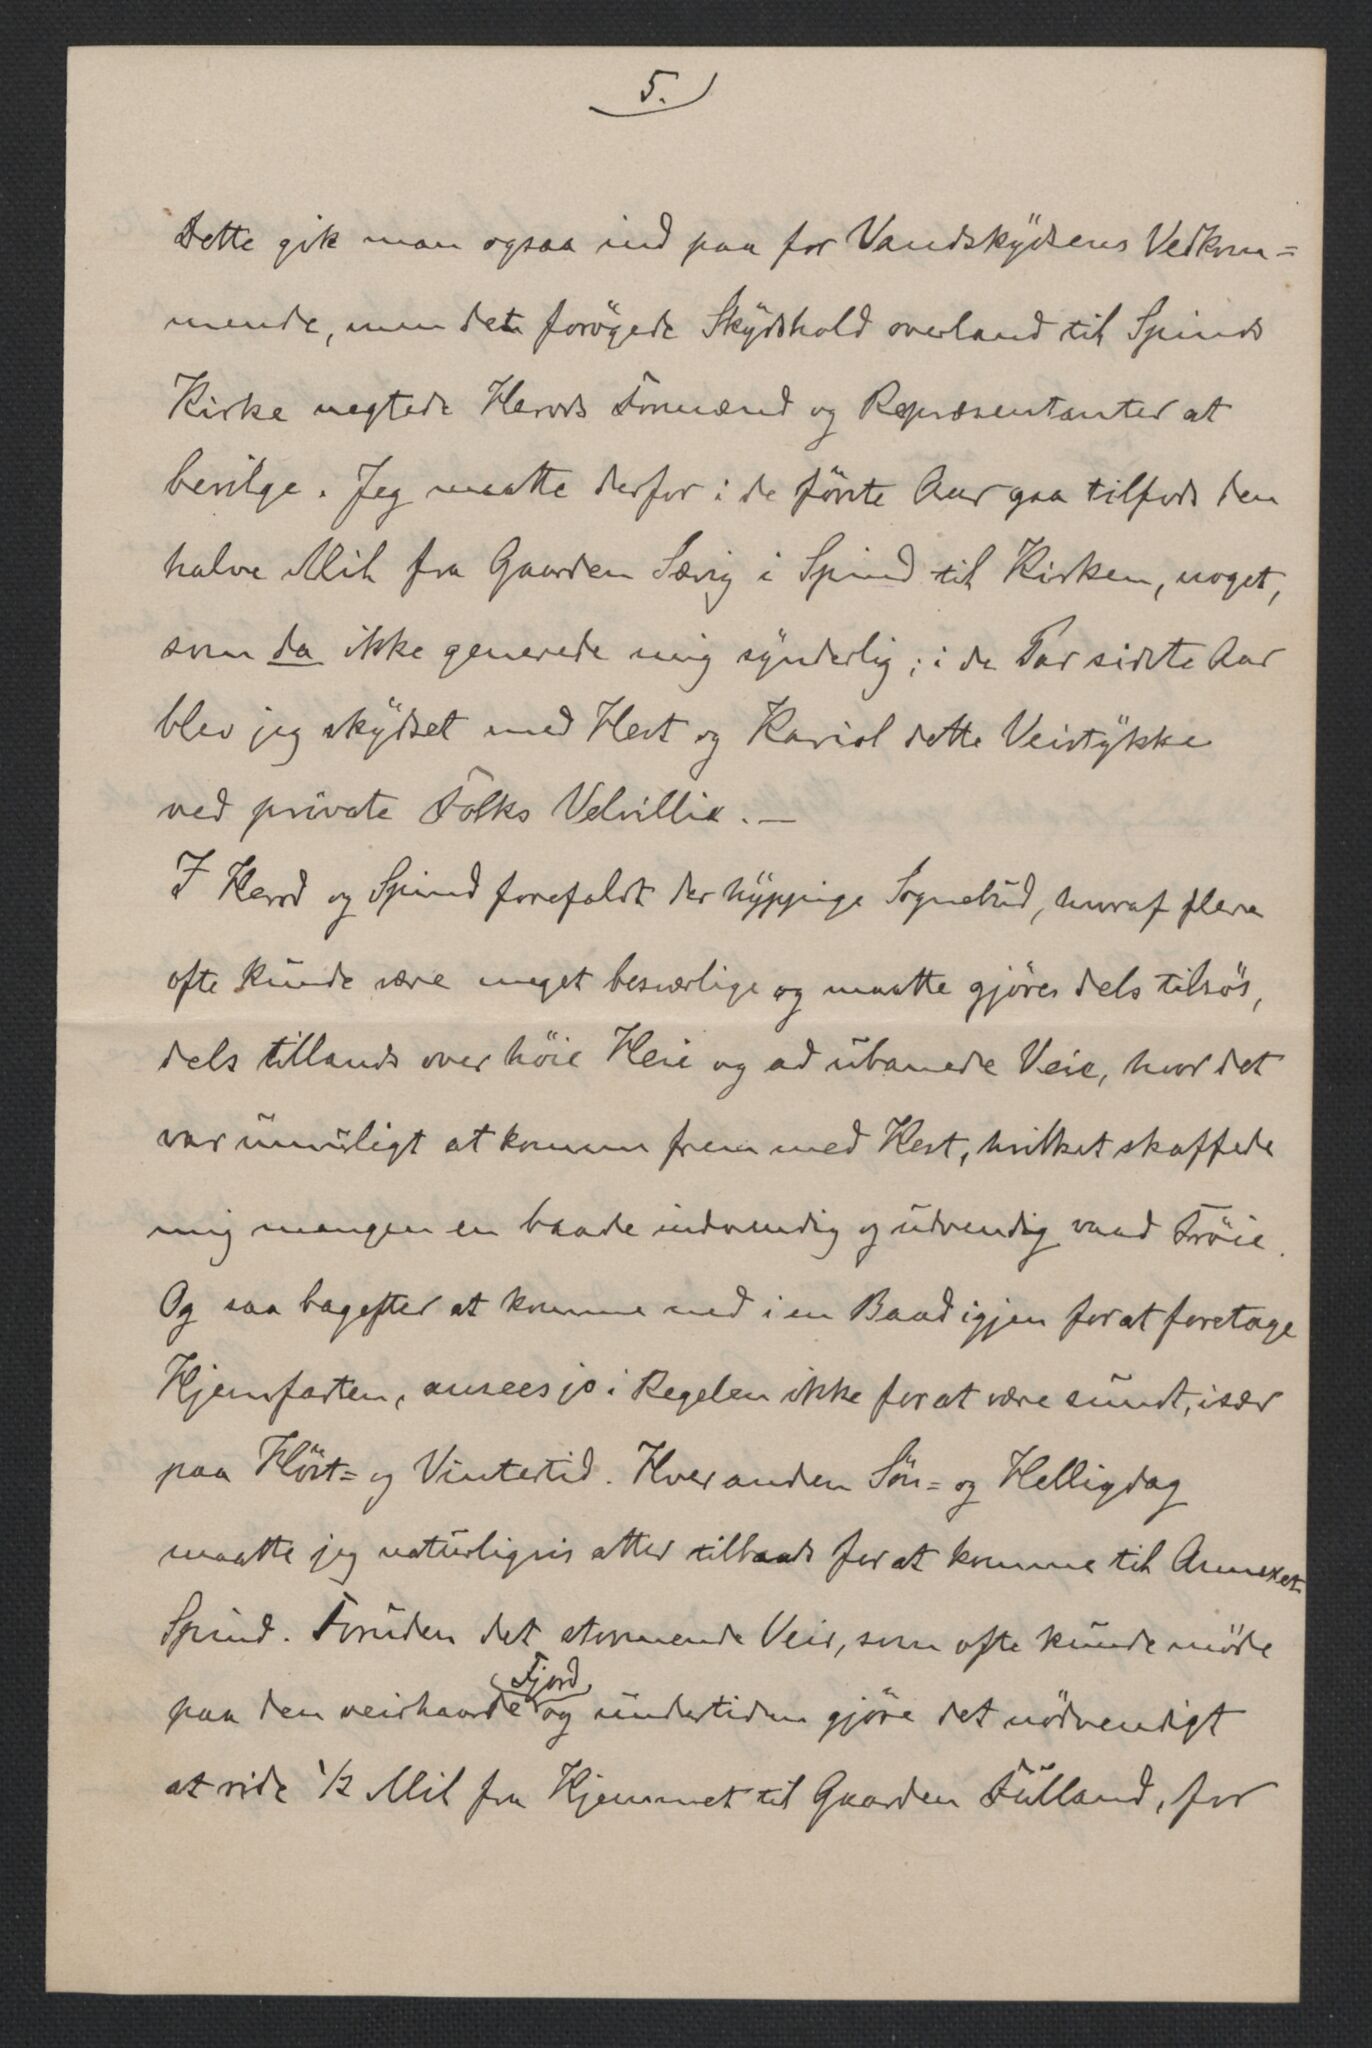 5.
Dette gik man ogsaa ind paa for Vandskydsens Vedkom=
mende, men det forøgede Skydshold overland til Spinds
Kirke negtede Herods Formænd og Repræsentanter at
bevilge. Jeg maatte derfor i de første Aar gaa tilfods den
halve Mil fra Gaarden Sævig i Spind til Kirken, noget,
som da ikke generede mig synderlig; i de Par sidste Aar
blev jeg skydset med Hest og Kariol dette Veistykke
ved private Folks Velvillie. —
I Herod og Spind forefaldt der hyppige Sognebud, hvoraf flere
ofte kunde være meget besværlige og maatte gjøres dels tilsøs,
dels tillands over høie Heie og ad ubanede Veie, hvor det
var umuligt at komme frem med Hest, hvilket skaffede
mig mangen en baade indvendig og udvendig vaad Trøie.
Og saa bagefter at komme ned i en Baad igjen for at foretage
Hjemfarten, ansees jo i Regelen ikke for at være sundt, især
paa Høst= og Vintertid. Hver anden Søn= og Helligdag
maatte jeg naturligvis atter tilbaads for at komme til Annexet
Spind. Foruden det stormende Veir, som ofte kunde møde
paa den veirhaarde Fjord og undertiden gjøre det nødvendigt
at ride 1/2 Mil fra Hjemmet til Gaarden Fülland, for